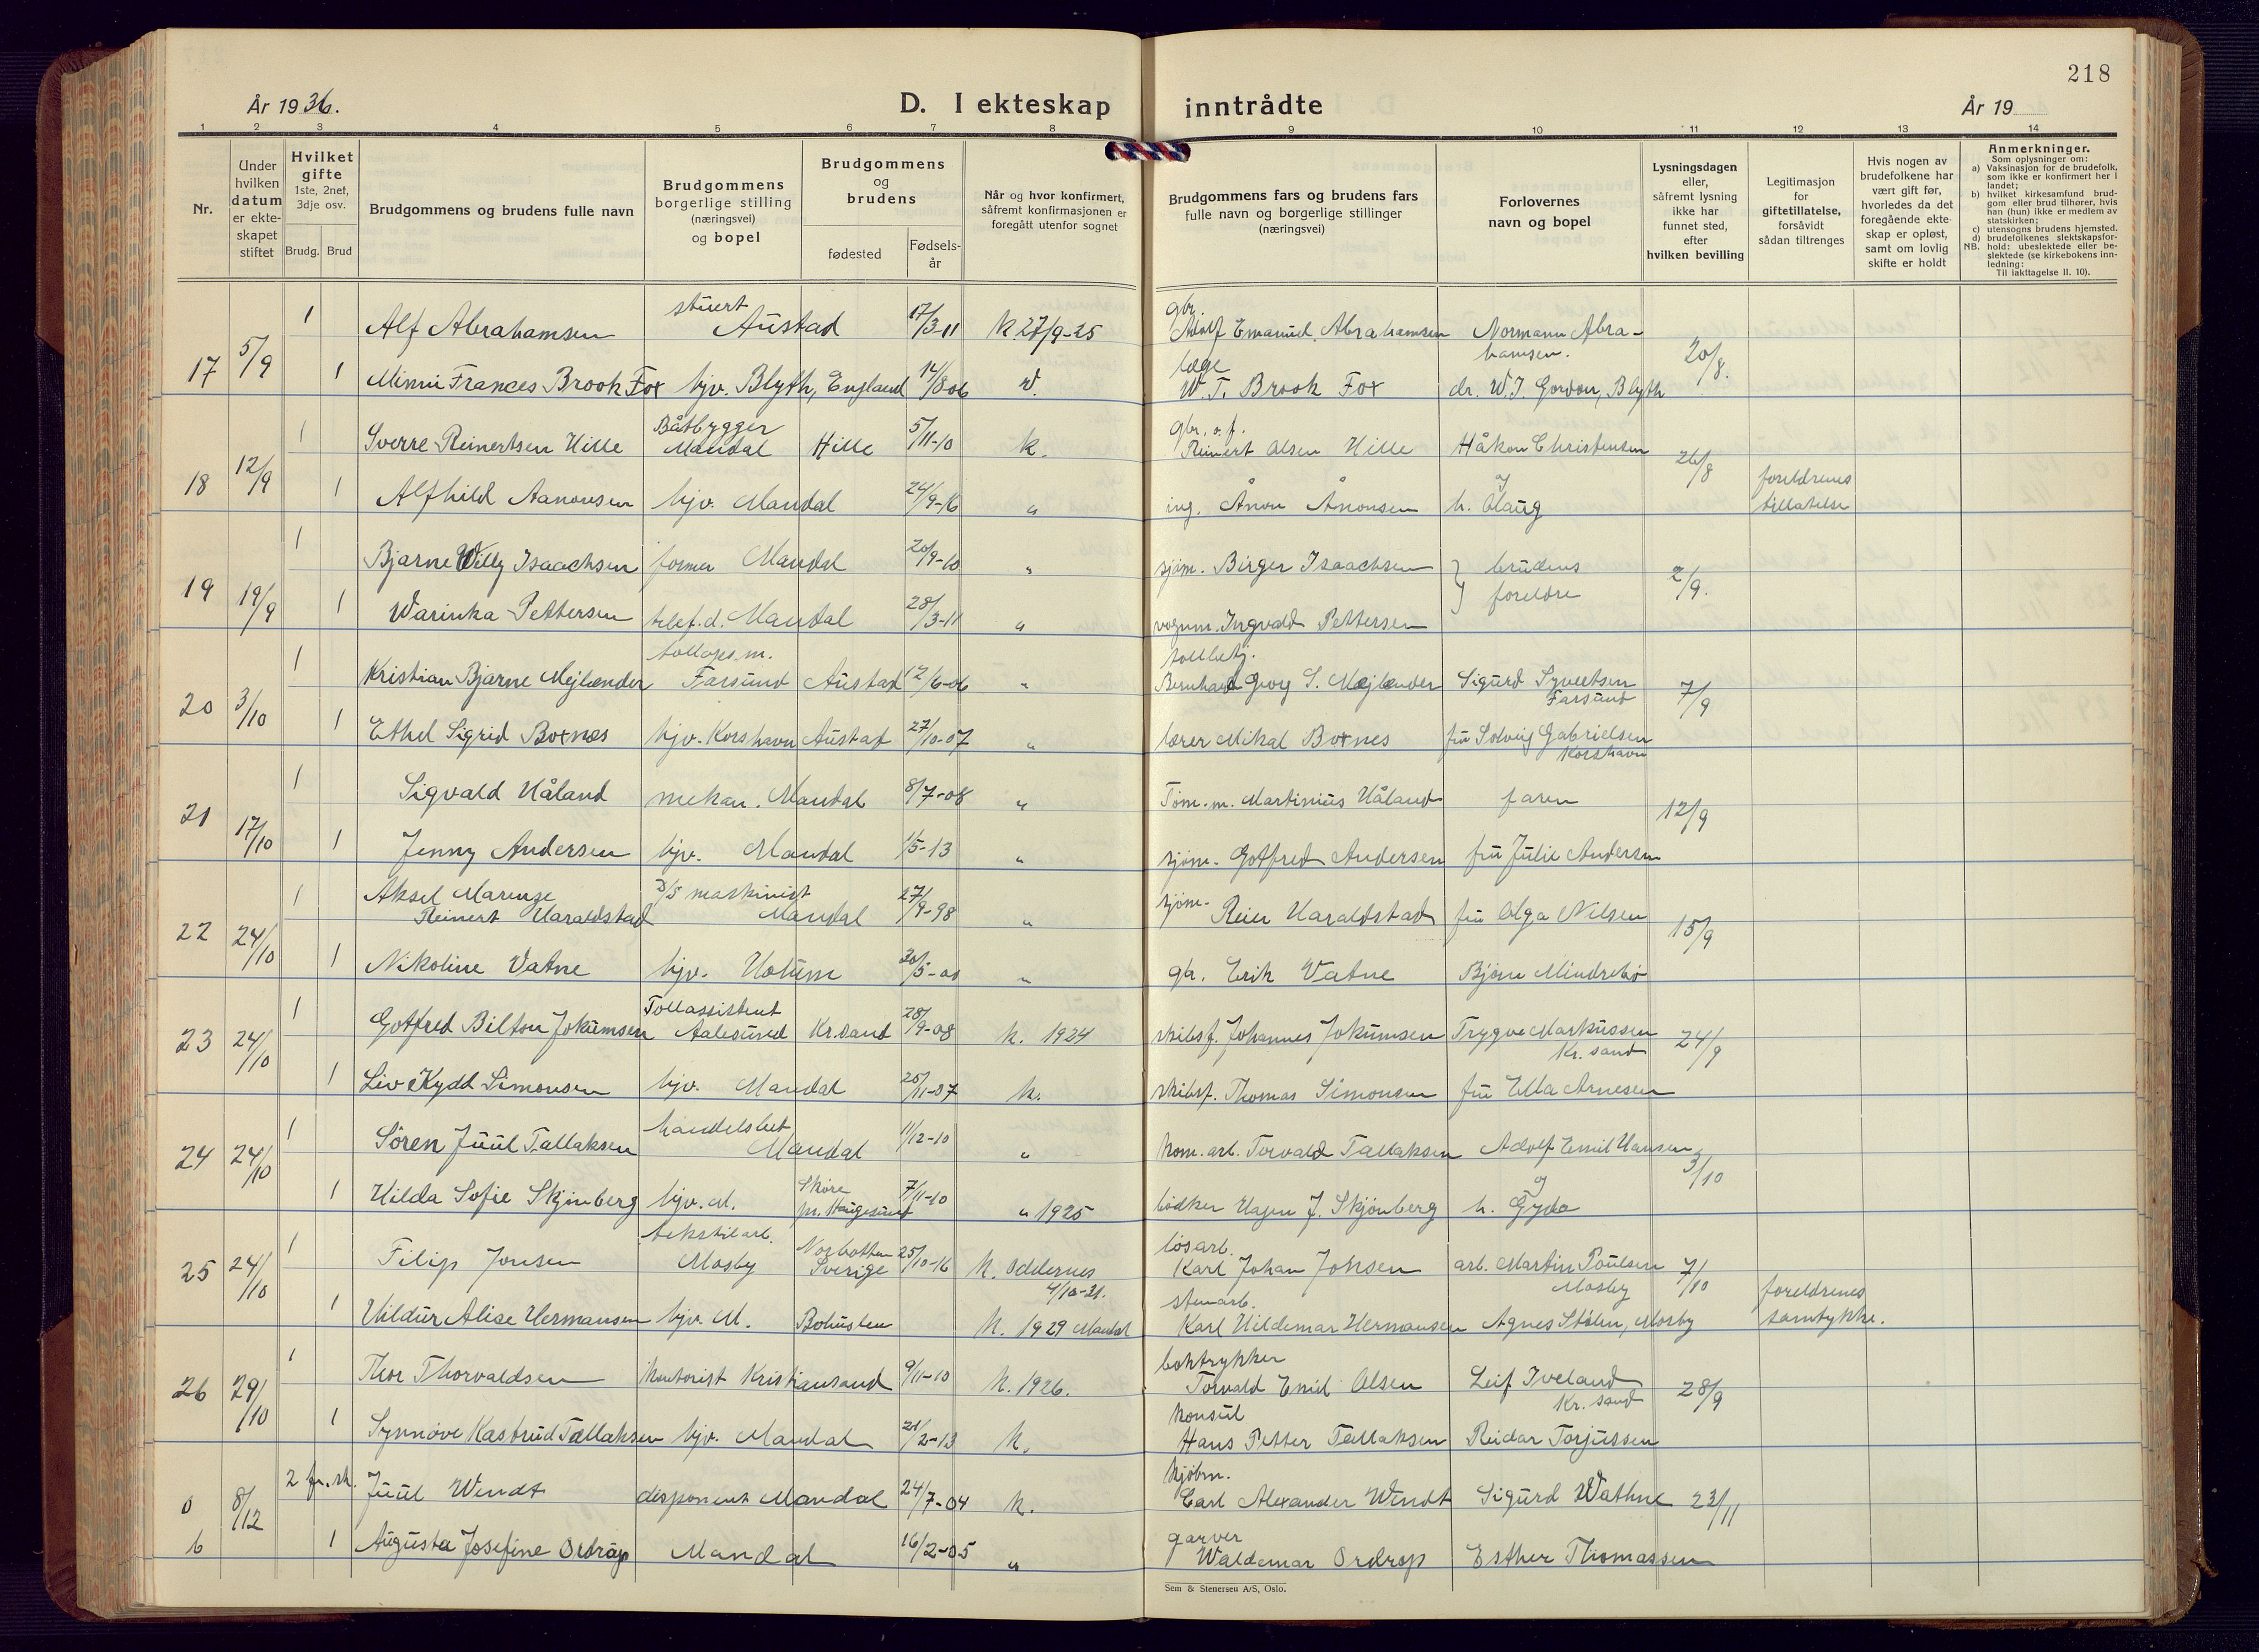 218
År 1936.
D. I ekteskap inntrådte
År 19
1 2 3 4 5 6 7 8 9 10 11 12 13 14
Nr.
Under hvilken datum er ekteskapet stiftet
Hvilket gifte
1ste, 2net, 3dje osv.
Brudg. Brud
Brudgommens og brudens fulle navn
Brudgommens borgerlige stilling (næringsvei) og bopel
Brudgommens og brudens
fødested
Fødsels-år
Når og hvor konfirmert, såfremt konfirmasjonen er foregått utenfor sognet
Brudgommens fars og brudens fars fulle navn og borgerlige stillinger (næringsvei)
Forlovernes navn og bopel
Lysningsdagen eller, såfremt lysning ikke har funnet sted, efter hvilken bevilling
Legitimasjon for giftetillatelse, forsåvidt sådan tiltrenges
Hvis nogen av brudefolkene har vært gift før, hvorledes da det foregående ekteskap er opløst, samt om lovlig skifte er holdt
Anmerkninger.
Som oplysninger om:
a) Vaksinasjon for de brudefolk, som ikke er konfirmert her i landet;
b) hvilket kirkesamfund brudgom eller brud tilhører, hvis han (hun) ikke er medlem av statskirken;
c) utensogns brudens hjemsted.
d) brudefolkenes slektskapsforhold: ubeslektede eller beslektede (se kirkebokens innledning:
NB.
Til iakttagelse II. 10).
17 5/9 1 Alf Abrahamsen stuert Austad 17/3-11 K 27/9-25 gbr. Adolf Emanuel Abrahamsen Normann Abrahamsen. 20/8.
1 Minni Frances Brook Fox hjv. Blyth, England 14/8 06 læge W. T. Brook Fox dr. W. J. Gordon, Blyth
18 12/9 1 Sverre Reinertsen Hille Båtbygger Mandal Hille 5/11-10 K. gbr. o. f. Reinert Olsen Hille Håkon Christensen 26/8
1 Alfhild Aanonsen hjv. Mandal 24/9-16 " ing. Ånon Ånonsen og h. Olaug foreldrenes tillatelse
19 19/9 1 Bjarne Willy Isaachsen former Mandal 20/9-10 " sjøm. Birger Isaachsen } brudens foreldre 2/9.
1 Warinka Pettersen telef.d. Mandal 28/3-11 " vognm. Ingvald Pettersen
20 3/10 1 Kristian Bjarne Mejlænder tollops.m. Farsund Austad 12/6-06 " tollbetj. Bernhard Georg S. Mejlænder Sigurd Syvertsen Farsund 7/9
1 Ethel Sigrid Boxnæs hjv. Korshavn Austad 27/10-07 " lærer Mikal Boxnes fru Solveig Gabrielsen Korshavn
21 17/10 1 Sigvald Håland mekan. Mandal 8/7-08 " Tøm.m. Martinius Håland faren 12/9
1 Jenny Andersen hjv. Mandal 1/5-13 " sjøm. Gotfred Andersen fru Julie Andersen
22 24/10 1 Aksel Marenge Reinert Haraldstad D/S maskinist Mandal 27/9-98 " sjøm. Reier Haraldstad fru Olga Nilsen 15/9
1 Nikoline Vatne hjv. Holum 30/5-01 " gbr. Erik Vatne Bjørn Mindrebø
23 24/10 1 Gotfred Bilton Jokumsen Tollassistent Aalesund Kr.sand 28/9-08 K. 1924 skibsf. Johannes Jokumsen Trygve Markussen Kr. sand 24/9
1 Liv Kydd Simonsen hjv. Mandal 25/11-07 K. skibsf. Thomas Simonsen fru Ella Arnesen
24 24/10 1 Sören Juul Tallaksen handelsbet. Mandal 11/12-10 " kom. arb. Torvald Tallaksen Adolf Emil Hansen 3/10
1 Hilda Sofie Skjönberg hjv. M. Skåre pr. Haugesund 7/11-10 " 1925 bödker Hagen J. Skjönberg og h. Gyda
25 24/10 1 Filip Jonsen tekstilarb. Mosby Norbotten Sverige 25/10-16 K. Oddernes 4/10-31. løsarb. Karl Johan Johsen arb. Martin Poulsen Mosby 7/10
1 Hildur Alise Hermansen hjv. M. Bohuslen K. 1929 Mandal stenarb. Karl Hildemar Hermansen Agnes Stölen, Mosby foreldrenes samtykke.
26 29/10 1 Thor Thorvaldsen kontorist Kristiansand 9/11-10 K. 1926. boktrykker Torvald Emil Olsen Leif Iveland Kr. sand 28/9
1 Synnøve Kastrud Tallaksen hjv. Mandal 21/2-13 K. konsul Hans Petter Tallaksen Reidar Torjussen
0 8/12 2 fr.sk. Juul Wendt disponent Mandal 24/7-04 K. kjøbm. Carl Alexander Wendt Sigurd Wathne 23/11
6 1 Augusta Josefine Ordrop Mandal 16/2-05 " garver Waldemar Ordrop Esther Thomassen
Sem & Stenersen A/S, Oslo.